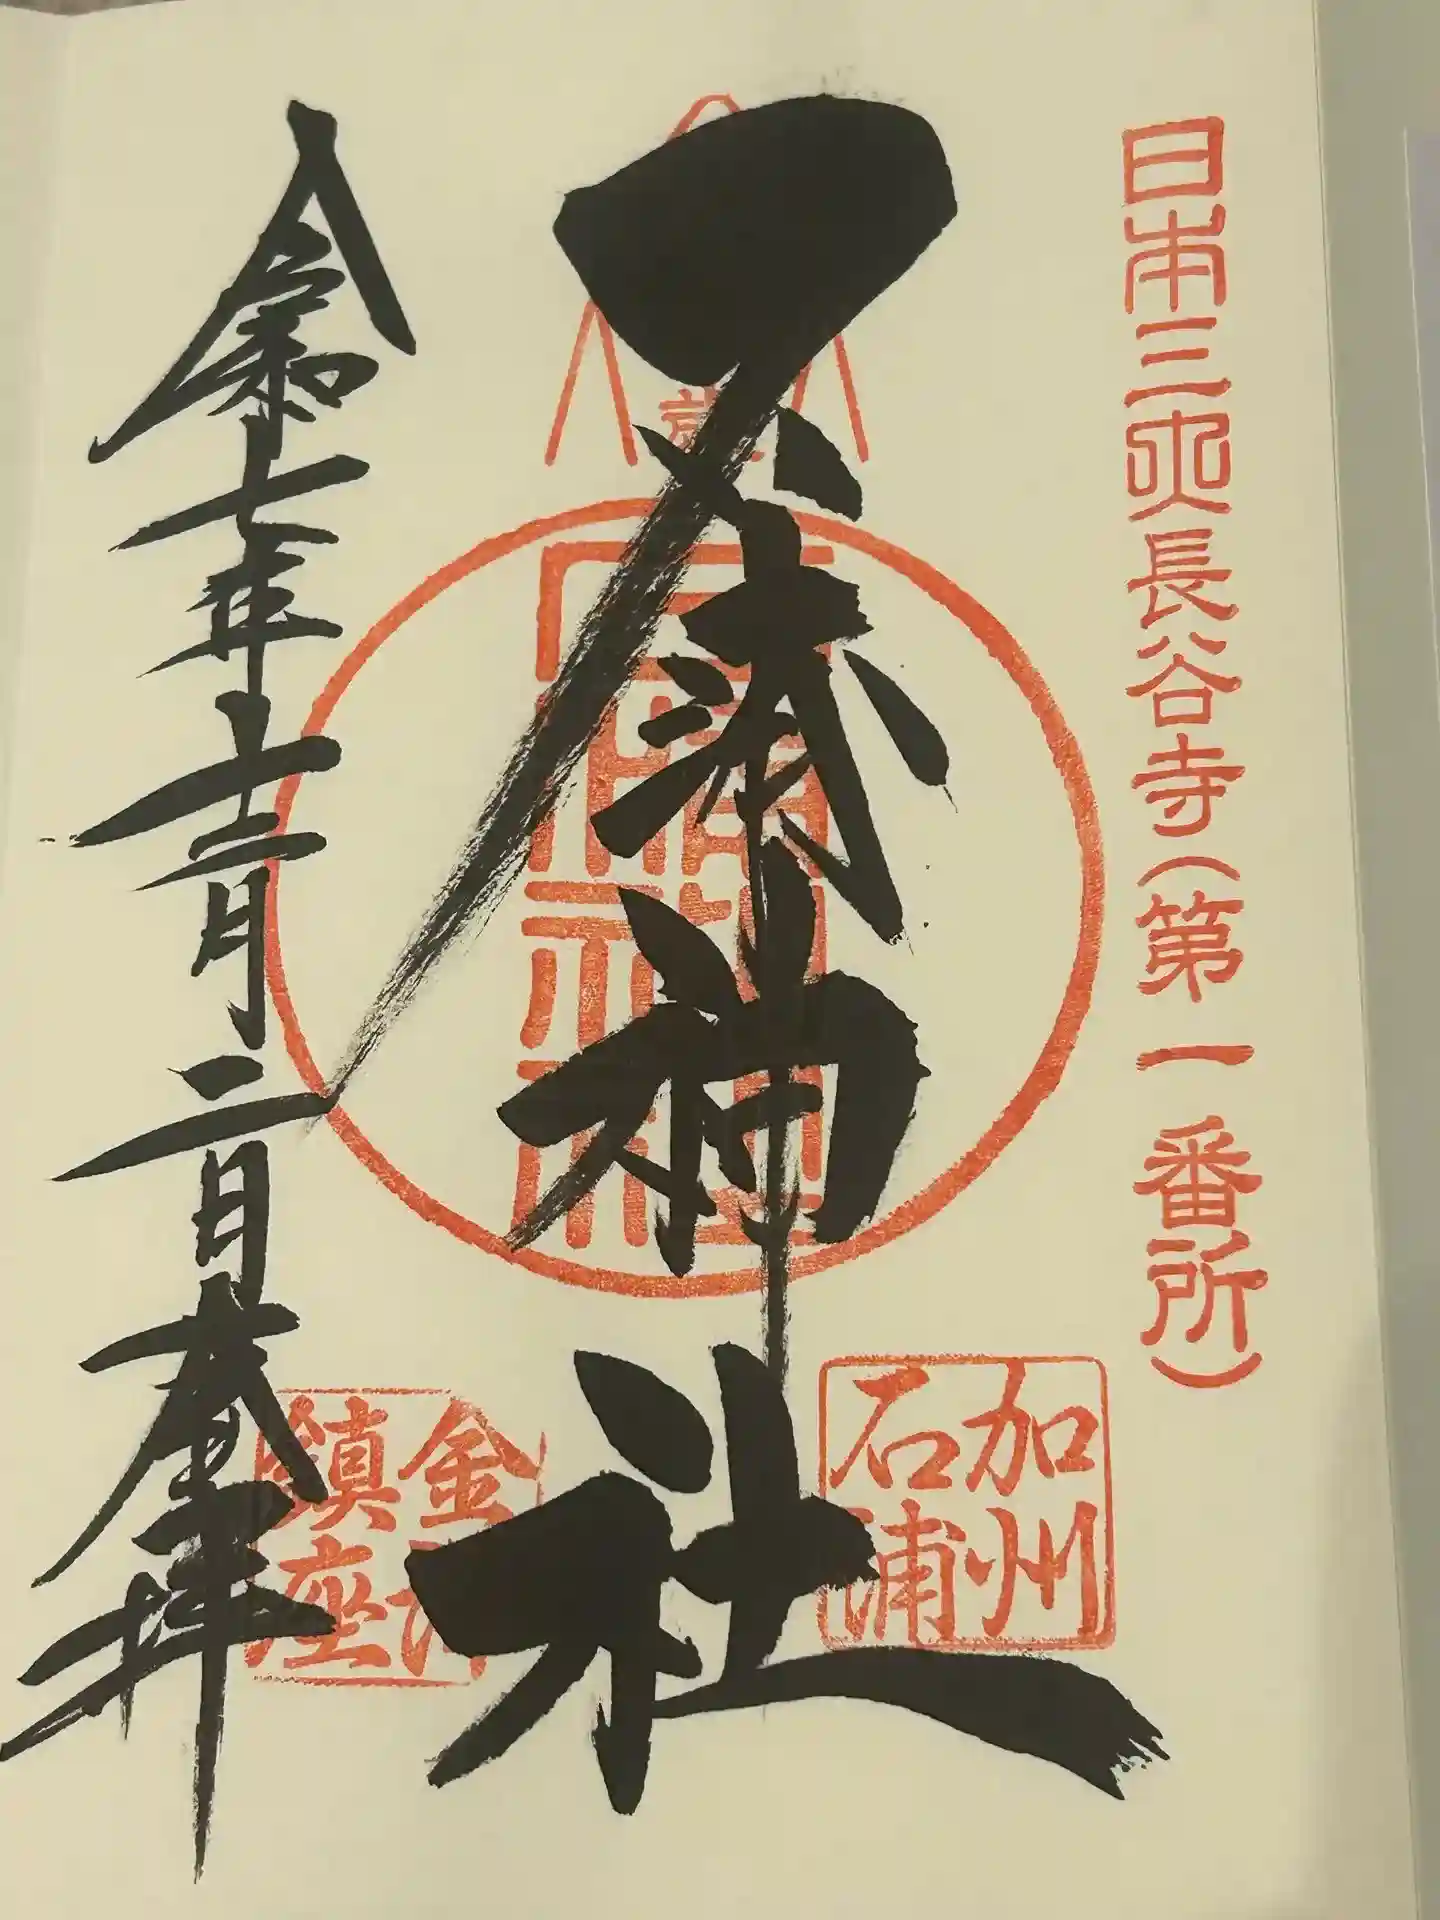 日本三大長谷寺(第一番所)
石浦神社
加州
石浦
金沢
鎮座
令和七年十二月二日奉拝